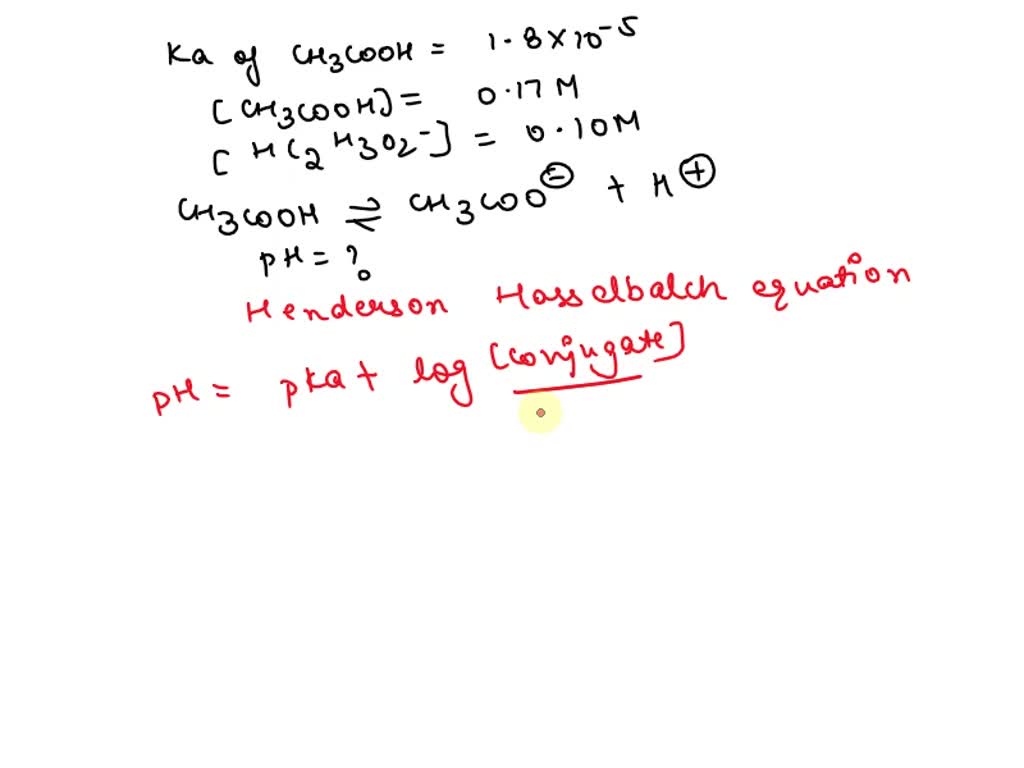 Ka of CH3COOH = 1.8×10^-5
[CH3COOH] = 0.17 M
[HC2H3O2^-] = 0.10M
CH3COOH ⇌ CH3COO^⊖ + H^⊕
pH = ?
Henderson Hasselbalch equation
pH = pka + log [conjugate]